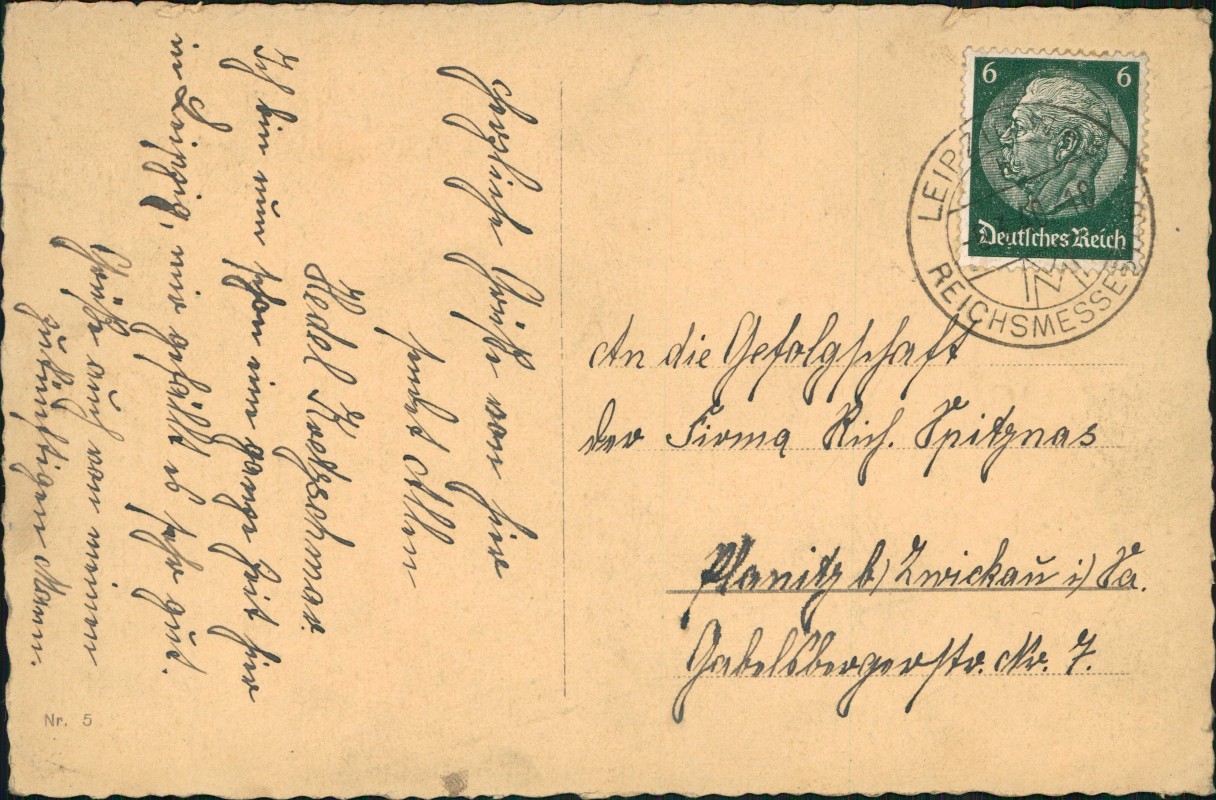 Herzliche Grüße von hier
sendet Allen
Hedel Rotzschmar.
Ich bin nun schon eine ganze Zeit hier
in Leipzig, mir gefällt es sehr gut.
Grüße auch von meinem
zukünftigen Mann.
Nr. 5
6 6
Deutsches Reich
LEIPZIG
REICHSMESSE
An die Gefolgschaft
der Firma Rich. Spitznas
Planitz b/ Zwickau i/ Sa.
Gabelsbergerstr. Nr. 7.